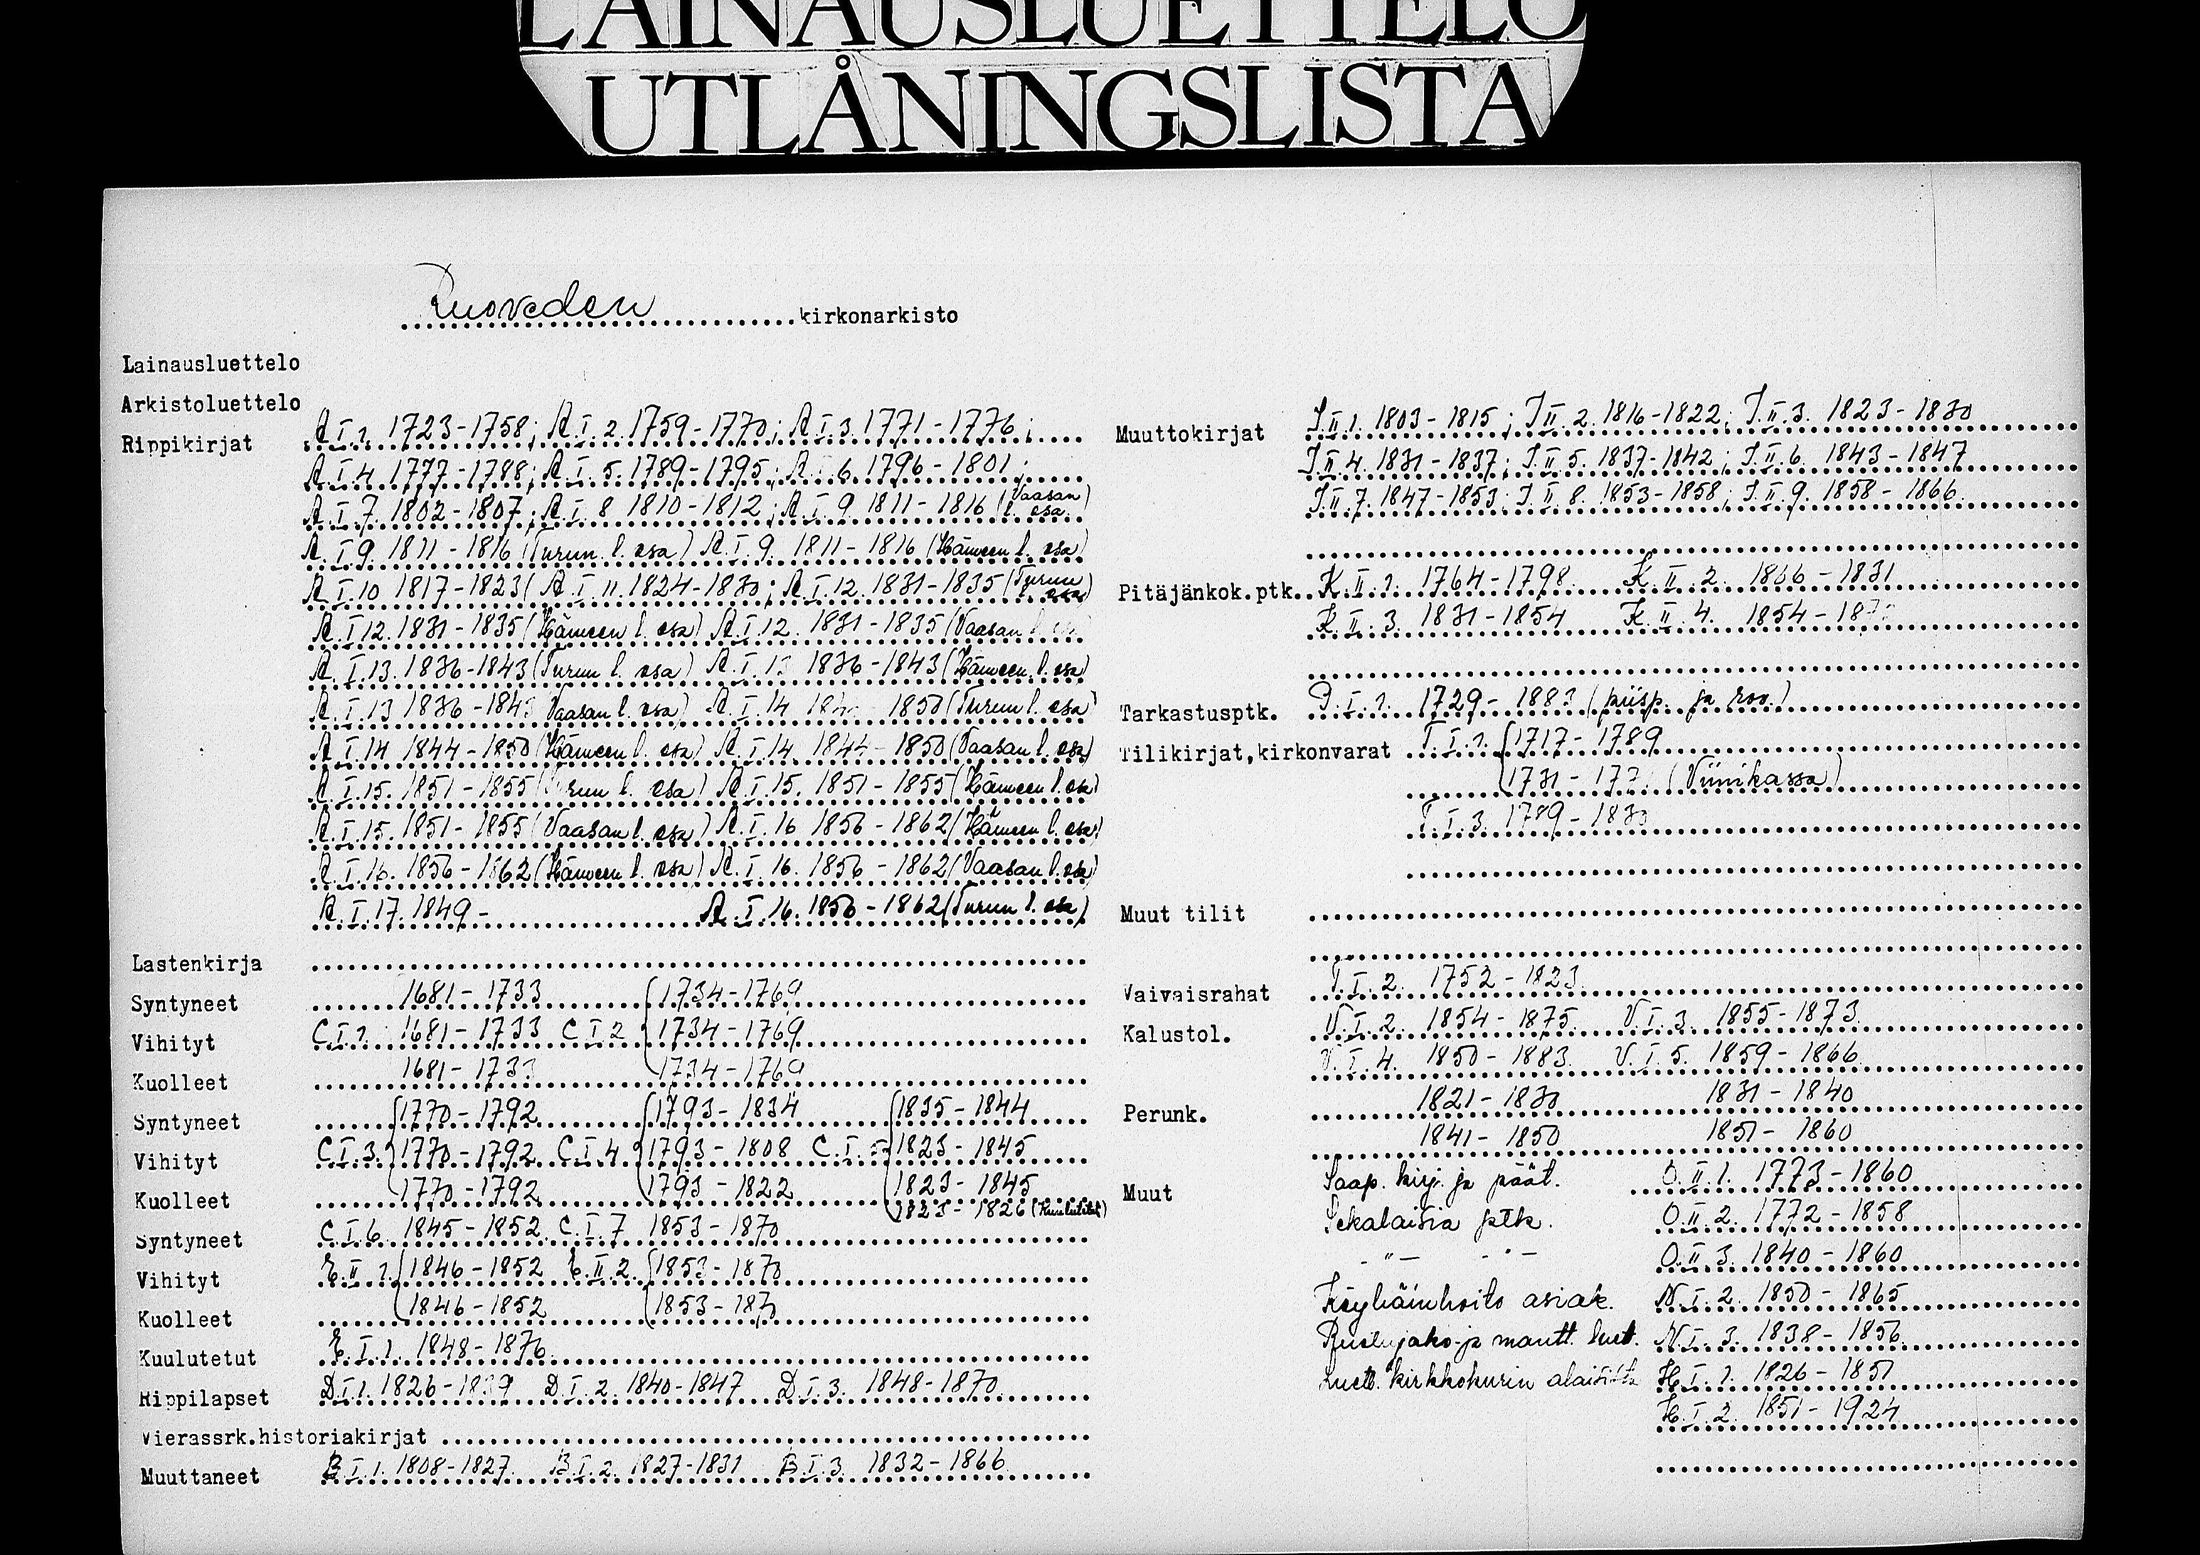 LAINAUSLUETTELO
UTLÅNINGSLISTA
Ruoveden kirkonarkisto
Lainausluettelo
Arkistoluettelo
Rippikirjat A.I.1. 1723-1758; A.I.2. 1759-1770; A.I.3. 1771-1776;
A.I.4. 1777-1788; A.I.5. 1789-1795; A.I.6. 1796-1801;
A.I.7. 1802-1807; A.I.8 1810-1812; A.I.9 1811-1816 (Vaasan l. osa)
A.I.9. 1811-1816 (Turun l. osa) A.I.9. 1811-1816 (Hämeen l. osa)
A.I.10 1817-1823( A.I.11. 1824-1830; A.I.12. 1831-1835 (Turun osa)
A.I.12. 1831-1835 (Hämeen l. osa) A.I.12. 1831-1835 (Vaasan
A.I.13. 1836-1843 (Turun l. osa) A.I.13 1836-1843 (Hämeen l. osa)
A.I.13 1836-1843 Vaasan l. osa) A.I.14 1850 (Turun l. osa)
A.I.14 1844-1850 (Hämeen l. osa) A.I.14. 1844-1850 (Vaasan l. osa)
A.I.15. 1851-1855 (Turun l. osa) A.I.15. 1851-1855 (Hämeen l. osa)
A.I.15. 1851-1855 (Vaasan l. osa) A.I.16 1856-1862 (Hämeen l. osa)
A.I.16. 1856-1862 (Hämeen l. osa) A.I.16. 1856-1862 (Vaasan l. osa)
A.I.17. 1849- A.I.16. 1856-1862 (Turun l. osa)
Lastenkirja
Syntyneet 1681-1733 1734-1769
Vihityt C.I.1. 1681-1733 C.I.2 1734-1769
Kuolleet 1681-1733 1734-1769
Syntyneet 1770-1792 1793-1834 1835-1844
Vihityt C.I.3. 1770-1792 C.I.4. 1793-1808 C.I.5 1823-1845
Kuolleet 1770-1792 1793-1822 1823-1845
1823-1826 (Kuulutetut)
Syntyneet C.I.6. 1845-1852 C.I.7 1853-1870
Vihityt E.II.1. 1846-1852 E.II.2. 1853-1870
Kuolleet 1846-1852 1853-1870
Kuulutetut E.I.1. 1848-1876
Rippilapset D.I.1. 1826-1839 D.I.2. 1840-1847 D.I.3. 1848-1870
Vierassrk.historiakirjat
Muuttaneet B.I.1. 1808-1827 B.I.2. 1827-1831 B.I.3. 1832-1866
Muuttokirjat J.II.1. 1803-1815; J.II.2. 1816-1822; J.II.3. 1823-1830
J.II.4. 1831-1837; J.II.5. 1837-1842; J.II.6. 1843-1847
J.II.7. 1847-1853; J.II.8. 1853-1858; J.II.9. 1858-1866
Pitäjänkok.ptk. K.II.1. 1764-1798 K.II.2. 1866-1831
K.II.3. 1831-1854 K.II.4. 1854-
Tarkastusptk. P.I.1. 1729-1883 (piisp. ja rov.)
Tilikirjat,kirkonvarat T.I.1. 1717-1789
1731- (Viinikassa)
T.I.3. 1789-1830
Muut tilit
Vaivaisrahat T.I.2. 1752-1823
Kalustol. V.I.2. 1854-1875 V.I.3. 1855-1873
V.I.4. 1850-1883 V.I.5. 1859-1866
Perunk. 1821-1830 1831-1840
1841-1850 1851-1860
Muut Saap. kirj. ja päät. O.II.1. 1773-1860
Sekalaisia ptk. O.II.2. 1772-1858
-"- -"- O.II.3. 1840-1860
Köyhäinhoito asiak. N.I.2. 1850-1865
Ruotujako-ja mantt. luet. N.I.3. 1838-1856
Luett. kirkkokurin alaisista H.I.1. 1826-1851
H.I.2. 1851-1924